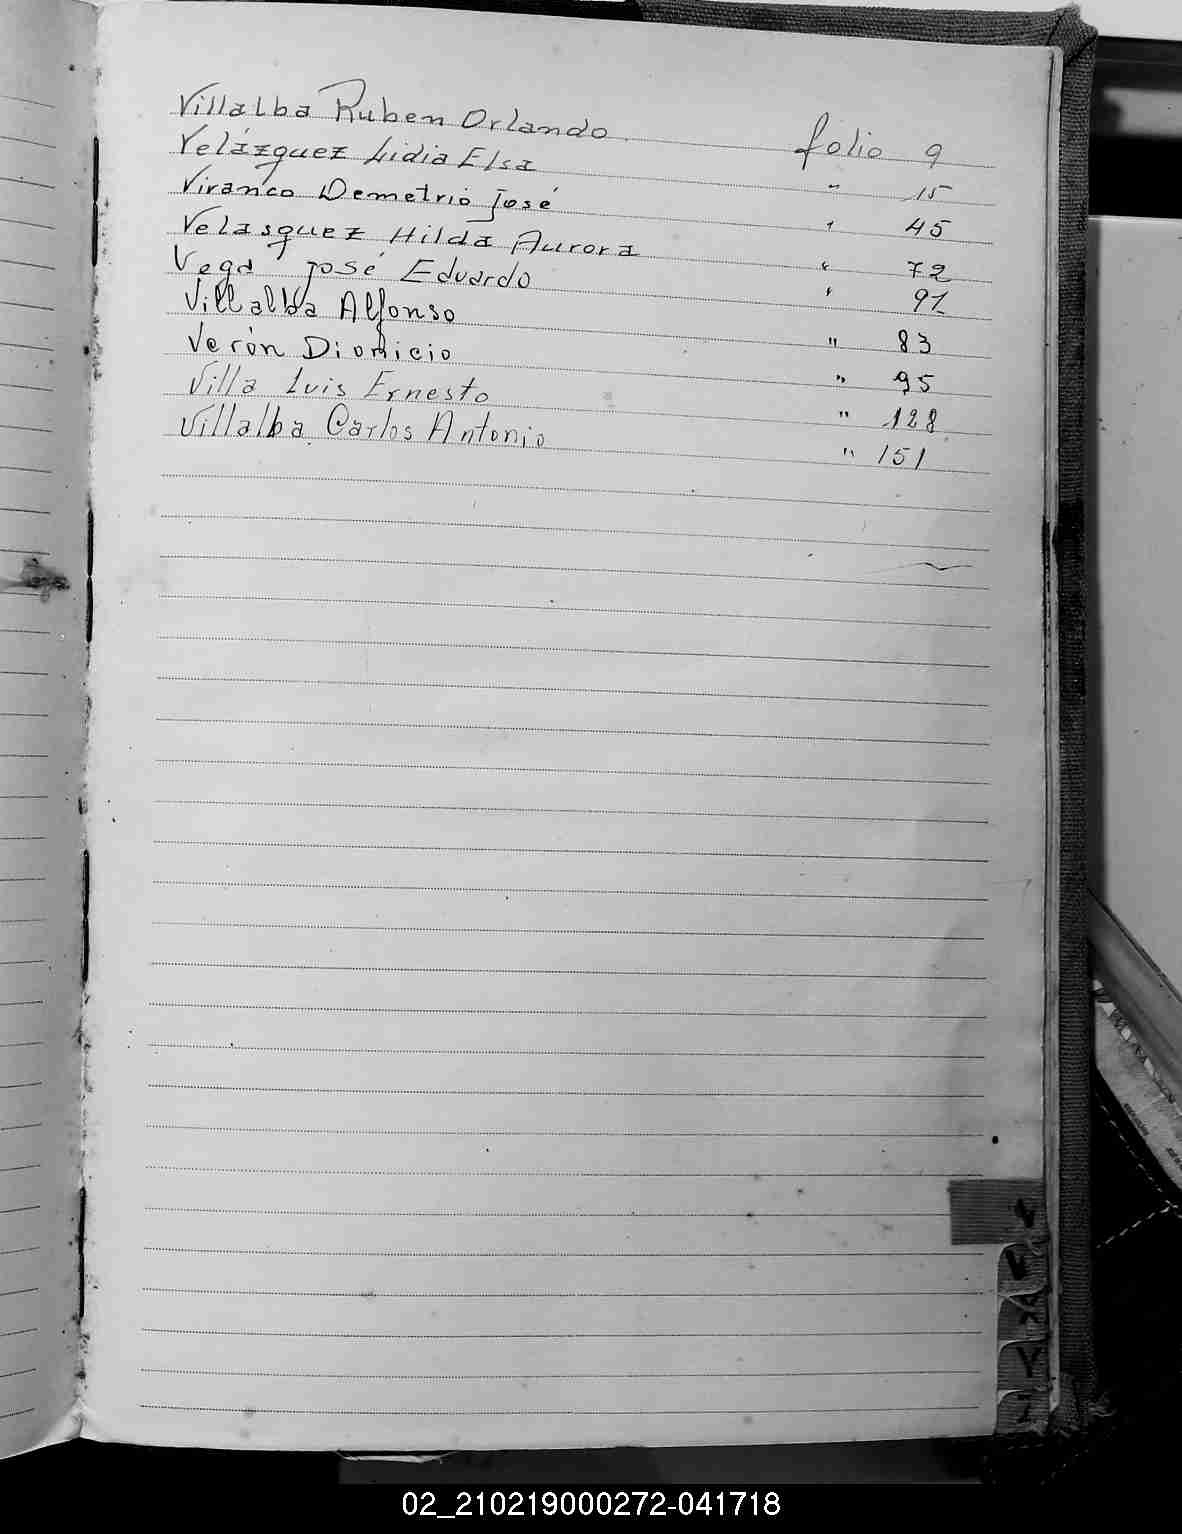 Villalba Ruben Orlando folio 9
Velázquez Lidia Elsa " 15
Viranco Demetrio José " 45
Velasquez Hilda Aurora " 72
Vega José Eduardo " 91
Villalba Alfonso " 83
Verón Dionicio " 95
Villa Luis Ernesto " 128
Villalba Carlos Antonio " 151
V
X
Y
Z
02_210219000272-041718